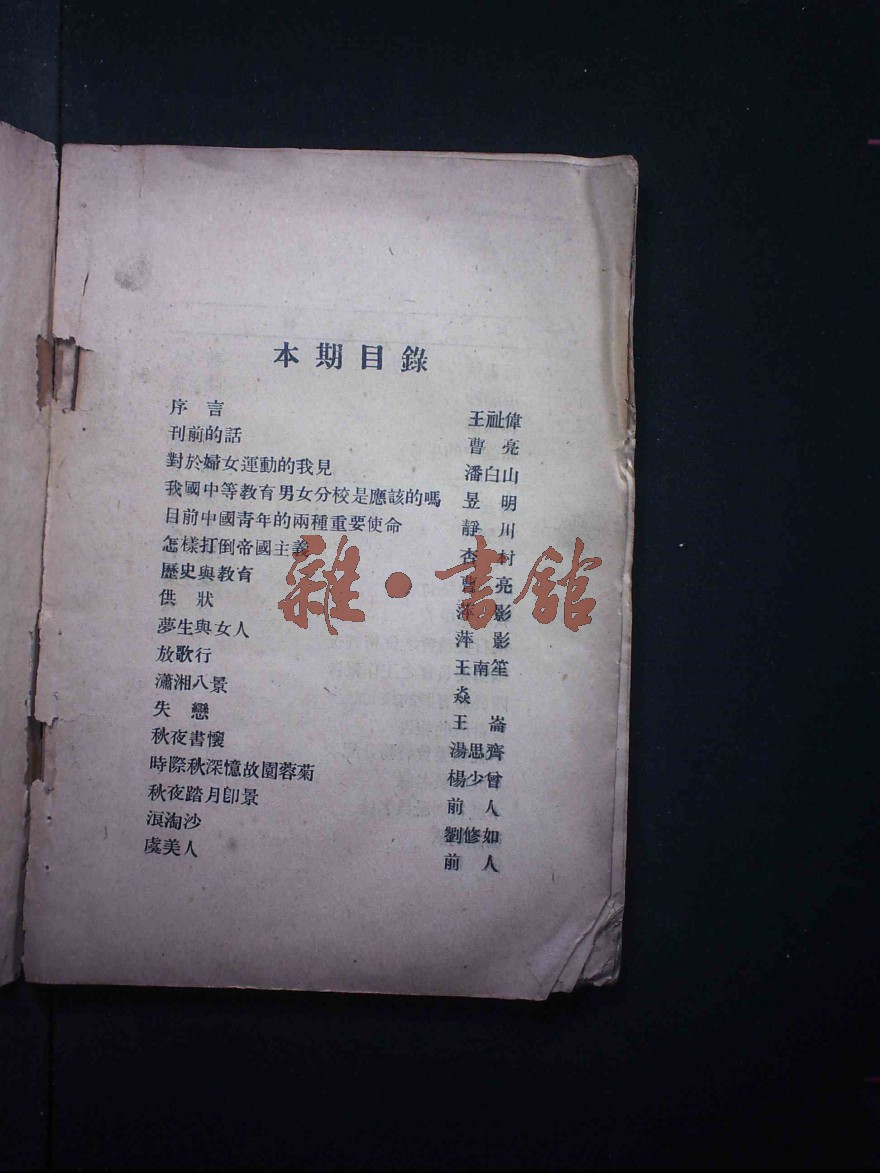 本期目錄
序言 王祉偉
刊前的話 曹亮
對於婦女運動的我見 潘白山
我國中等教育男女分校是應該的嗎 昱明
目前中國青年的兩種重要使命 靜川
怎樣打倒帝國主義 杏村
歷史與教育 曹亮
供狀 萍影
夢生與女人 萍影
放歌行 王南笙
瀟湘八景 焱
失戀 王崙
秋夜書懷 湯思齊
時際秋深憶故園蓉菊 楊少曾
秋夜踏月卽景 前人
浪淘沙 劉修如
虞美人 前人
雜·書館